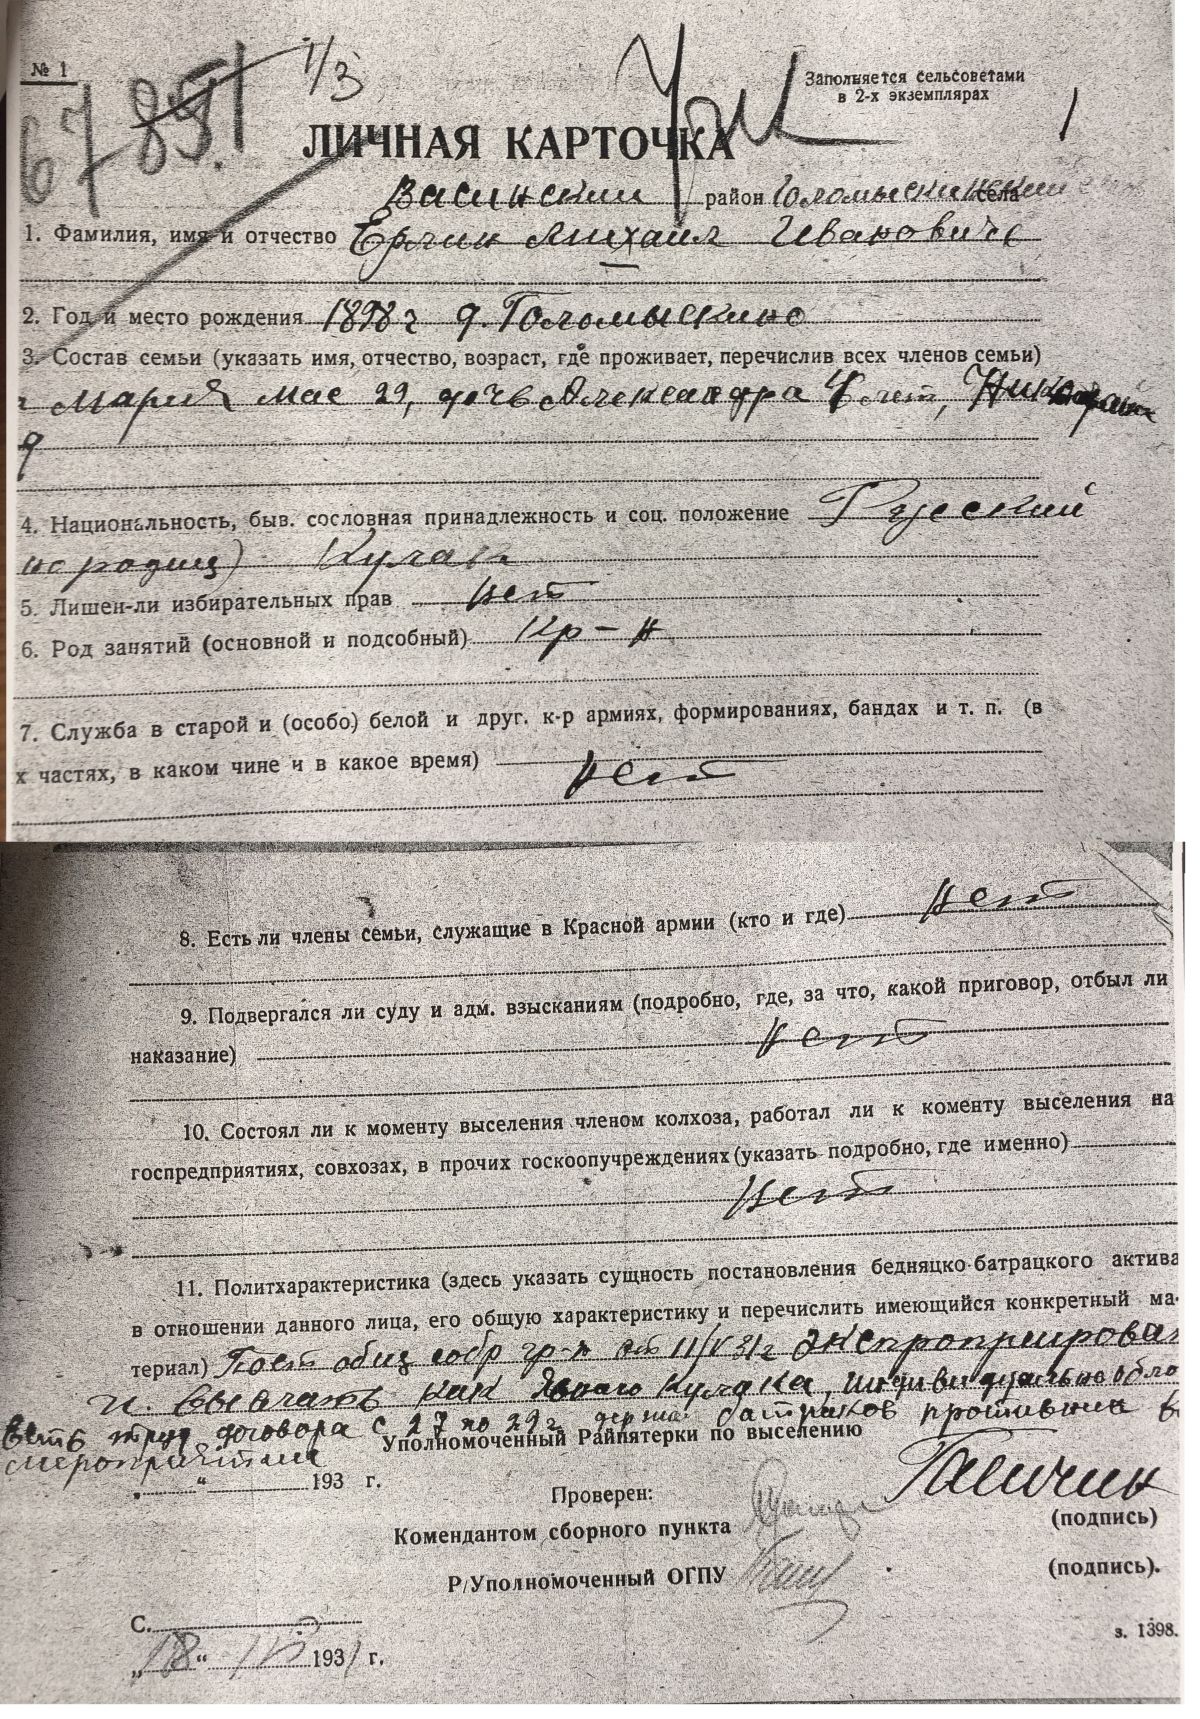 № 1
67 851 1/3
Заполняется сельсоветами
в 2-х экземплярах
1
ЛИЧНАЯ КАРТОЧКА
район села
1. Фамилия, имя и отчество Михаил Иванович
2. Год и место рождения 1898 г д. Голомыскино
3. Состав семьи (указать имя, отчество, возраст, где проживает, перечислив всех членов семьи)
Мария 29, дочь Александра 4 лет,
4. Национальность, быв. сословная принадлежность и соц. положение Русский
Кулак
5. Лишен-ли избирательных прав нет
6. Род занятий (основной и подсобный) кр-н
7. Служба в старой и (особо) белой и друг. к-р армиях, формированиях, бандах и т. п. (в
х частях, в каком чине и в какое время) нет
8. Есть ли члены семьи, служащие в Красной армии (кто и где) нет
9. Подвергался ли суду и адм. взысканиям (подробно, где, за что, какой приговор, отбыл ли
наказание) нет
10. Состоял ли к моменту выселения членом колхоза, работал ли к коменту выселения на
госпредприятиях, совхозах, в прочих госкоопучреждениях (указать подробно, где именно)
нет
11. Политхарактеристика (здесь указать сущность постановления бедняцко-батрацкого актива
в отношении данного лица, его общую характеристику и перечислить имеющийся конкретный ма-
териал) Пост общ собр гр-н от 11/V 31 г экспроприироват
и выслать как кулака, индивидуально обло
есть труд договора с 27 по 29 г держал батраков противник в
мероприятий
Уполномоченный Райпятерки по выселению
„ “ 193 г.
Проверен:
Комендантом сборного пункта
(подпись)
Р/Уполномоченный ОГПУ
(подпись).
С.
з. 1398.
„18“ 1931 г.